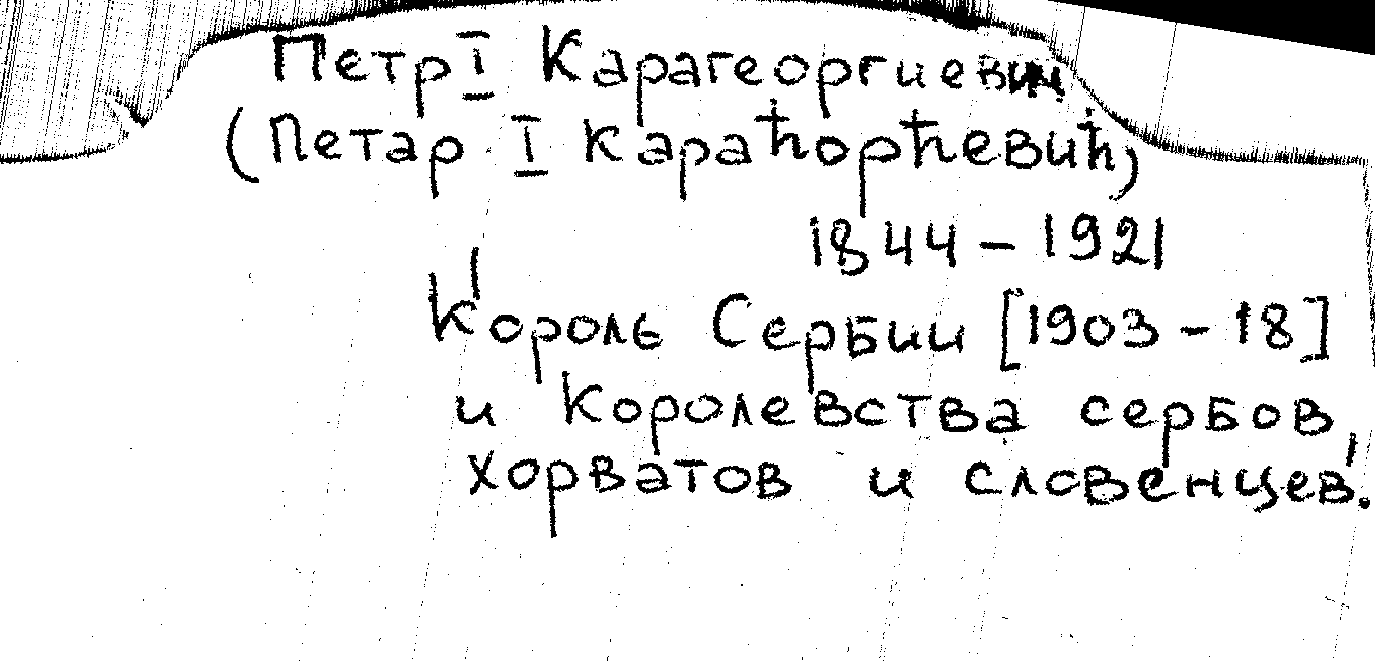 Петр I Карагеоргиевич
(Петар I Карађорђевић)
1844 - 1921
Король Сербии [1903 - 18]
и Королевства сербов,
хорватов и словенцев.